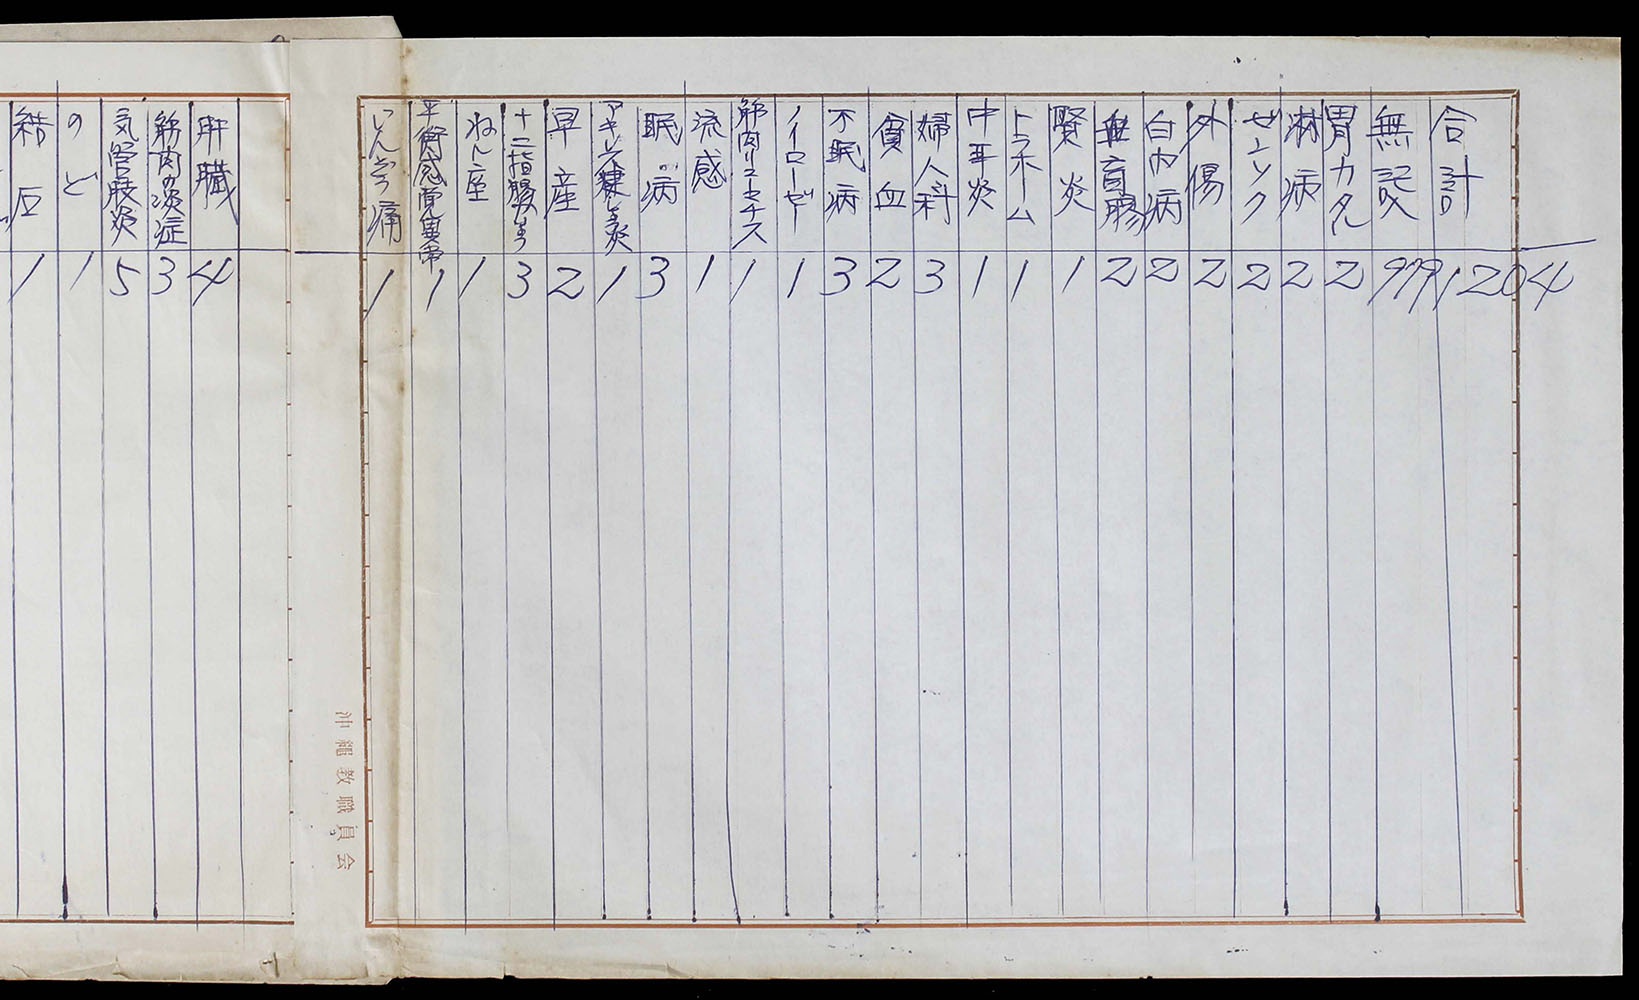 結石 1
のど 1
気管肢炎 5
筋肉の炎症 3
肝臓 4
しんぞう痛 1
平衡感覚異常 1
ねん座 1
十二指腸 3
早産 2
アキレス腱しょう炎 1
眼病 3
流感 1
筋肉リューマチス 1
ノイローゼ 1
不眠病 3
貧血 2
婦人科 3
中耳炎 1
トラホーム 1
腎炎 1
盲腸 2
白内病 2
外傷 2
ゼンソク 2
淋病 2
胃カタル 2
無記 979
合計 1204
沖繩教職員会